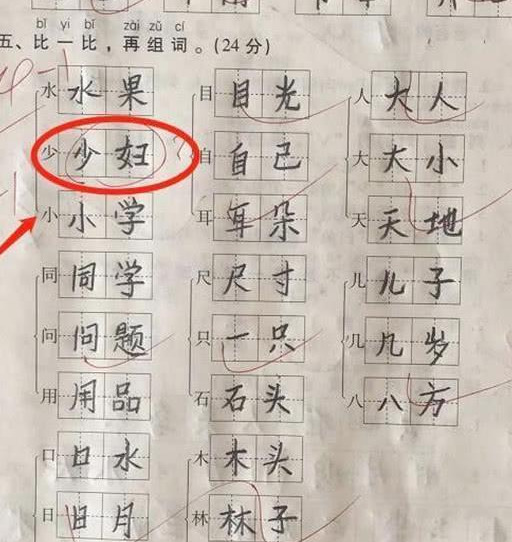 bǐ yi bǐ zài zǔ cí
五、比一比，再组词。(24分)
水 水果 目 目光 人 大人
少 少妇 自 自己 大 大小
小 小学 耳 耳朵 天 天地
同 同学 尺 尺寸 儿 儿子
问 问题 只 一只 几 几岁
用 用品 石 石头 八 八方
口 口水 木 木头
日 日月 林 林子